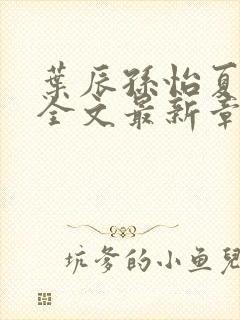 葉辰孫怡夏
全文最新章
坑爹的小魚兒